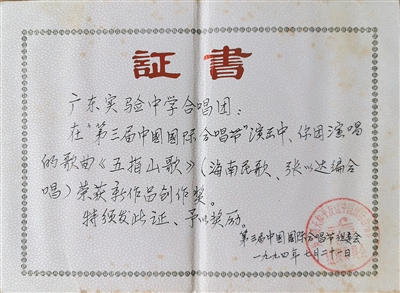 証書
广东实验中学合唱团：
在"第三届中国国际合唱节"演出中、你团演唱
的歌曲《五指山歌》（海南民歌、张以达编合
唱）荣获新作品创作奖。
特颁发此证、予以奖励。
第三届中国国际合唱节组委会
一九九四年七月二十一日